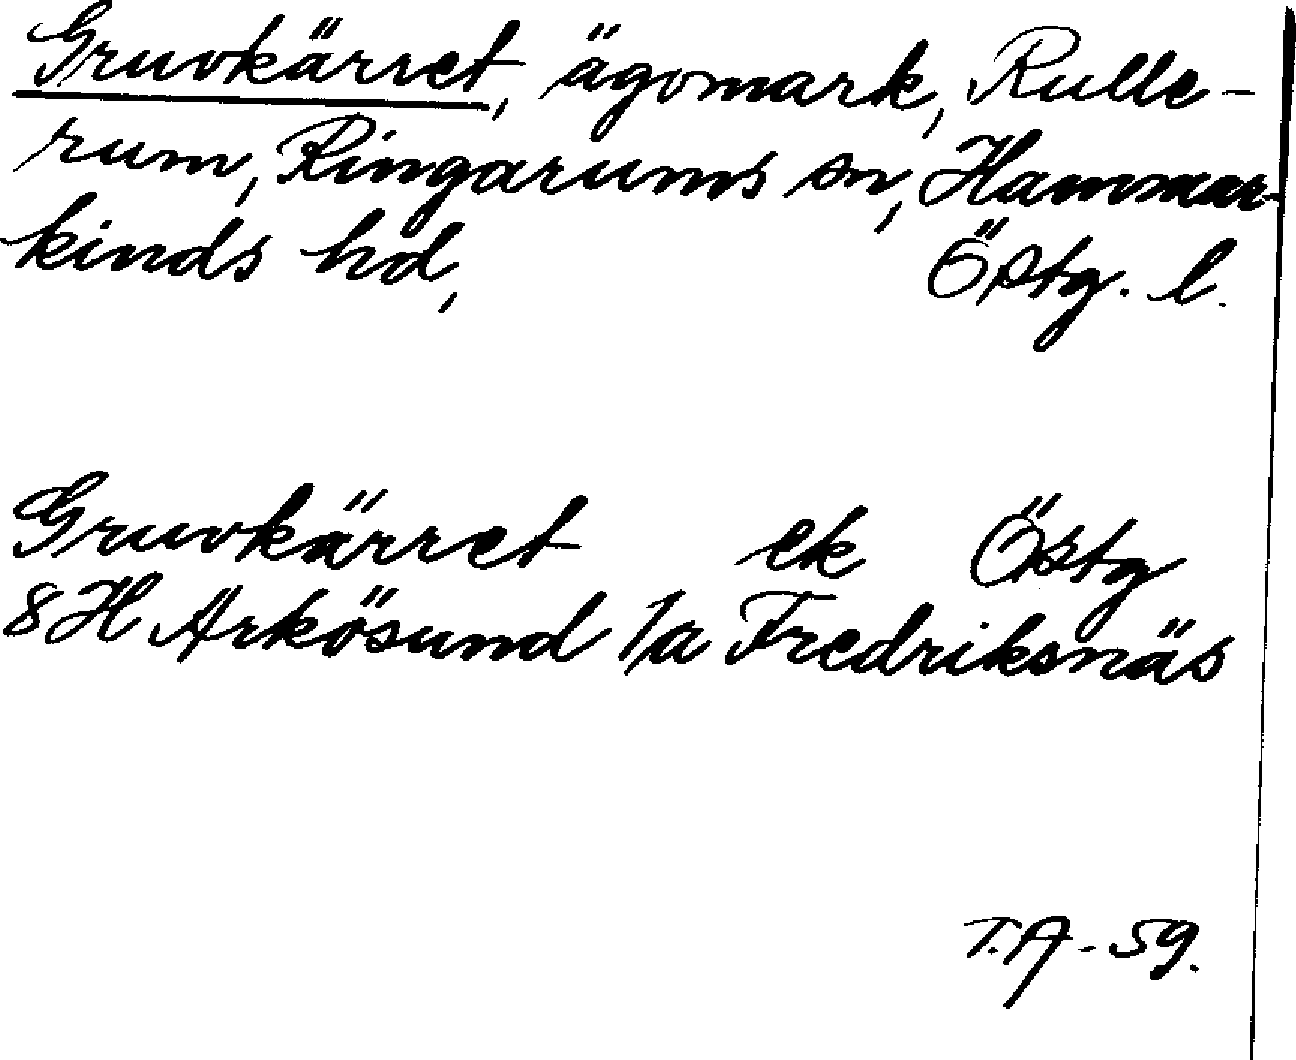 Gruvkärret, ägomark, Rulle-
rum, Ringarums sn, Hammar-
kinds hd, Östg. l.
Gruvkärret ek Östg
8H Arkösund 1a Fredriksnäs
T.A-59.